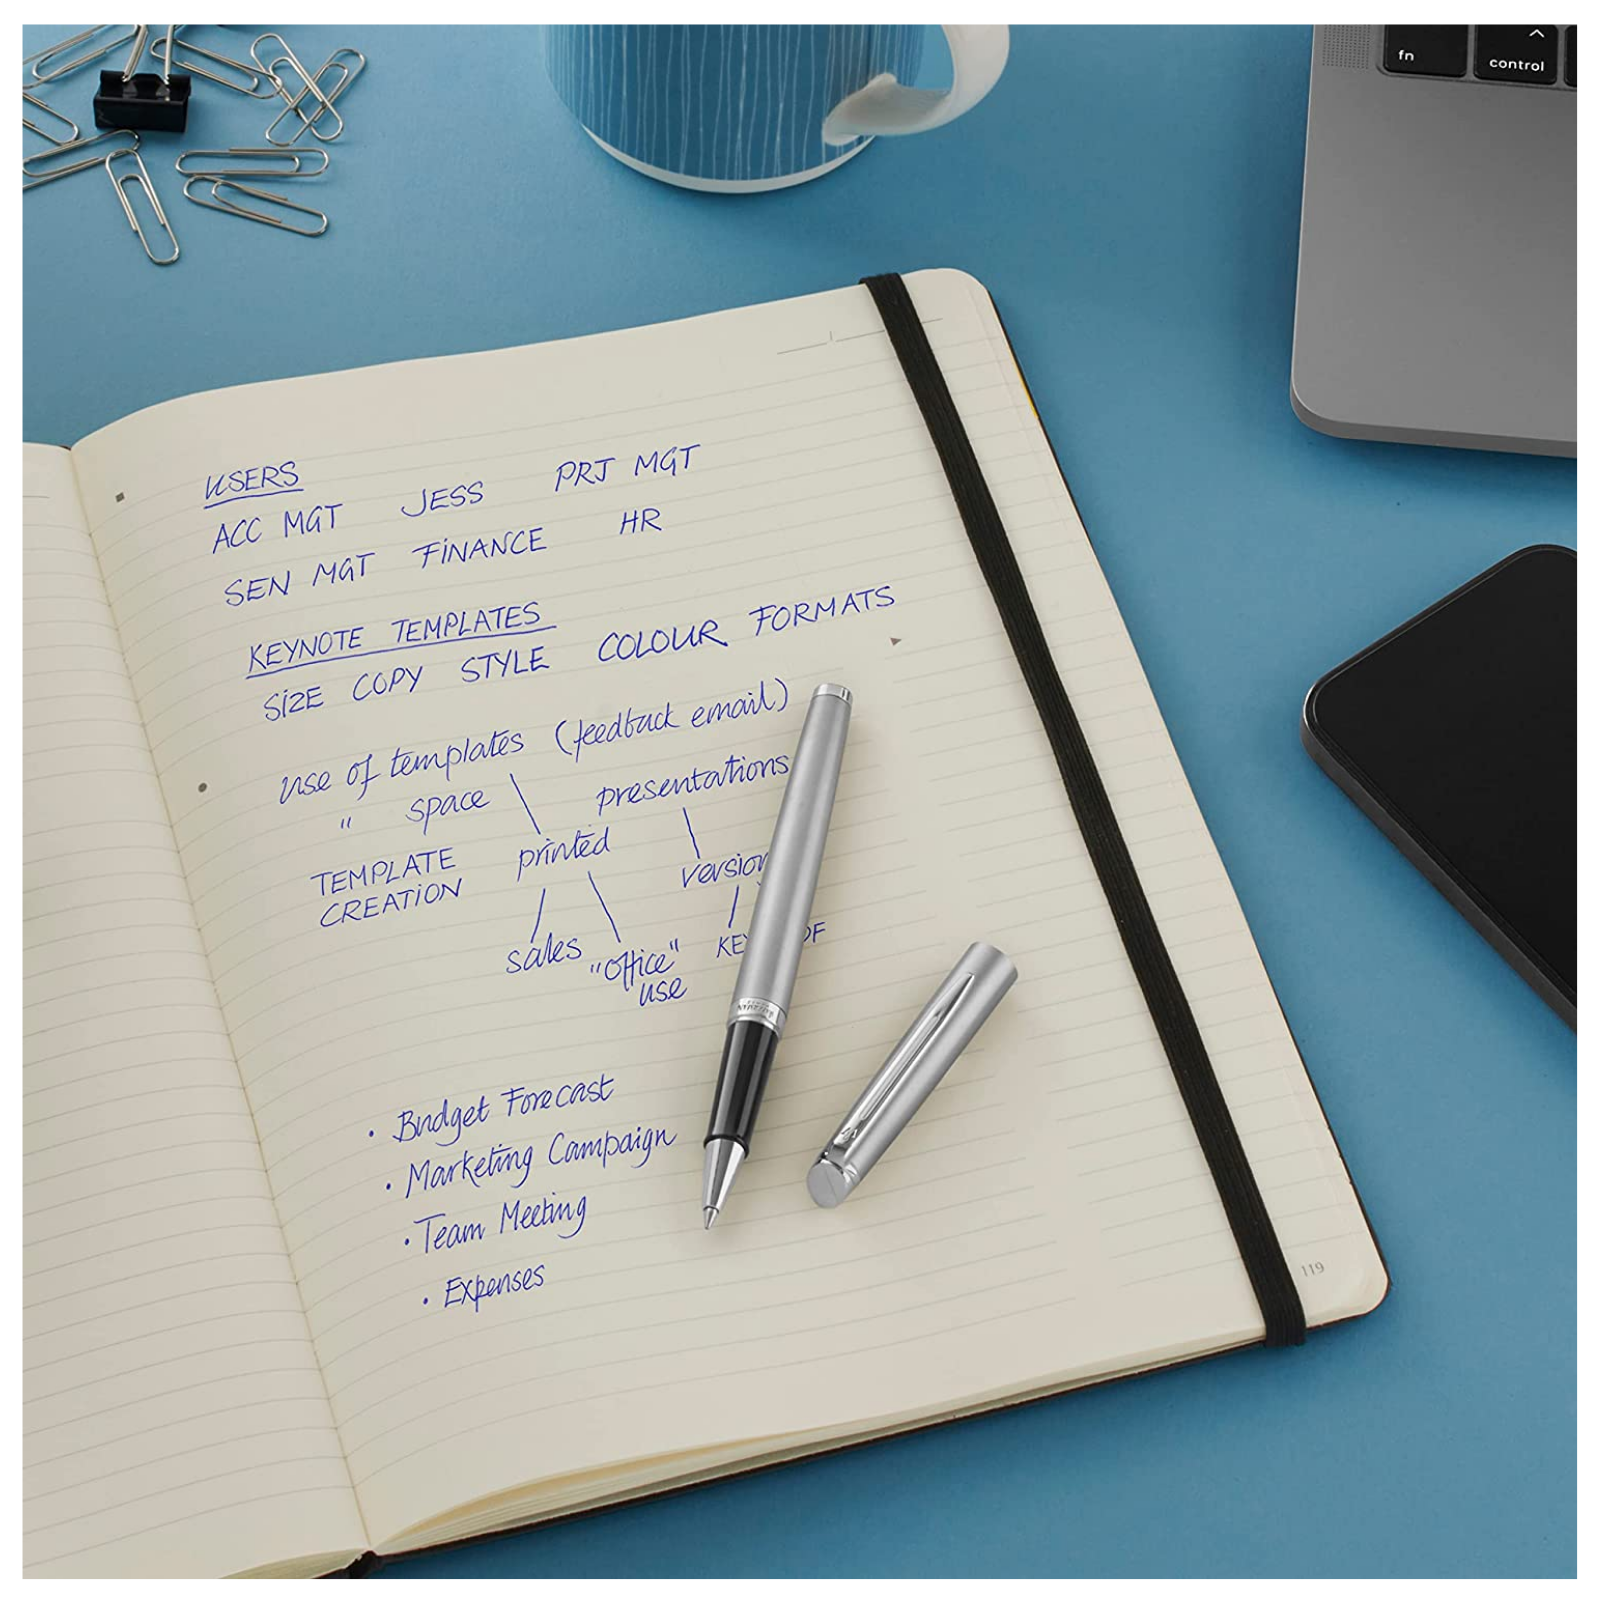 fn
control
USERS
ACC MGT JESS PRJ MGT
SEN MGT FINANCE HR
KEYNOTE TEMPLATES
SIZE COPY STYLE COLOUR FORMATS
use of templates (feedback email)
" space presentations
TEMPLATE printed version
CREATION
sales "office" KEY DF
use
• Budget Forecast
• Marketing Campaign
• Team Meeting
• Expenses
119